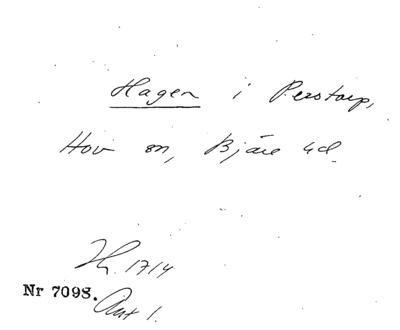 Hagen i Perstorp,
Hov sn, Bjäre hd.
Th. 1714
Nr 7098.
Ant 1.